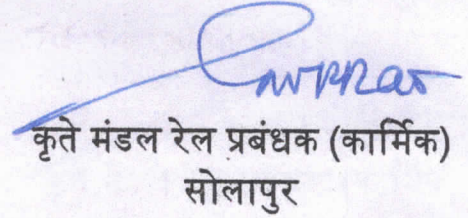 कृते मंडल रेल प्रबंधक (कार्मिक)
सोलापुर